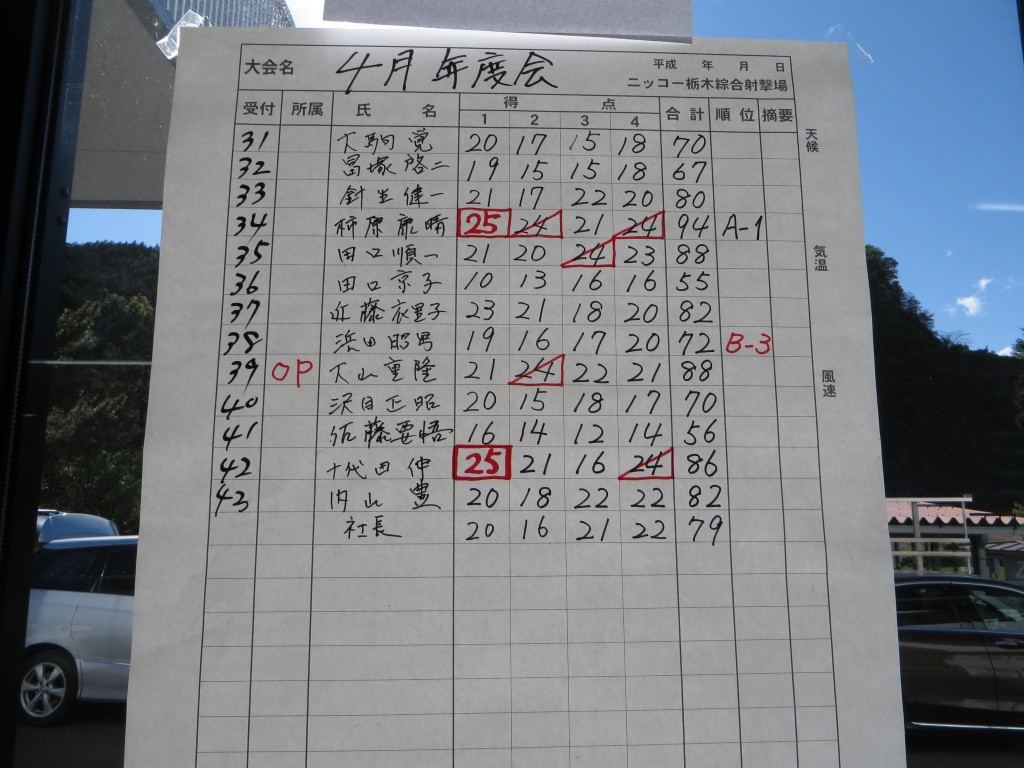 大会名 4月年度会 平成 年 月 日
ニッコー栃木綜合射撃場
受付 所属 氏 名 得 点 合計 順位 摘要
1 2 3 4
天候
31 大駒 覚 20 17 15 18 70
32 冨塚啓二 19 15 15 18 67
33 針生健一 21 17 22 20 80
34 柿原 晴 25 24 21 24 94 A-1
35 田口順一 21 20 24 23 88
気温
36 田口京子 10 13 16 16 55
37 近藤衣里子 23 21 18 20 82
38 浜田昭男 19 16 17 20 72 B-3
39 OP 大山重隆 21 24 22 21 88
風速
40 沢目正昭 20 15 18 17 70
41 佐藤要悟 16 14 12 14 56
42 十代田 伸 25 21 16 24 86
43 内山 豊 20 18 22 22 82
社長 20 16 21 22 79